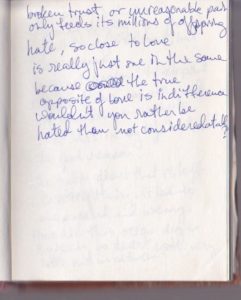 broken trust, or unreasonable pain
only feeds its millions of
hate, so close to love
is really just one in the same
because the true
opposite of love is indifference
wouldn't you rather be
hated than not considered at all?